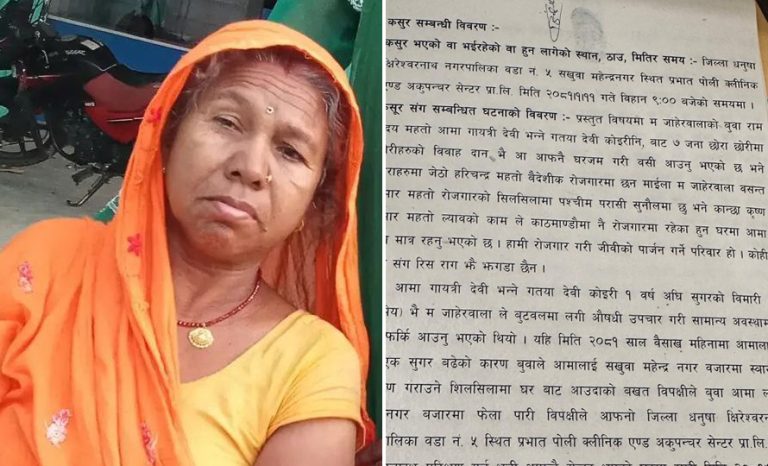 कसुर सम्बन्धी विवरण :-
कसुर भएको वा भईरहेको वा हुन लागेको स्थान, ठाउ, मितिर समय :- जिल्ला धनुषा
क्षिरेश्वरनाथ नगरपालिका वडा नं. ५ सखुवा महेन्द्रनगर स्थित प्रभात पोली क्लीनिक
एण्ड अकुपन्चर सेन्टर प्रा.लि. मिति २०८१।१।११ गते विहान ९:०० बजेको समयमा ।
कसूर संग सम्बन्धित घटनाको विवरण :- प्रस्तुत विषयमा म जाहेरवालाको बुवा राम
महतो आमा गायत्री देवी भन्ने गतया देवी कोइरीनि, बाट ७ जना छोरा छोरीमा
विवाह दान भै आ आफनै घरजम गरी वसी आउनु भएको छ भने
जेठो हरिचन्द्र महतो वैदेशीक रोजगारमा छन माईला म जाहेरवाला वसन्त
महतो रोजगारको सिलसिलामा पश्चीम परासी सुनौलमा छु भने कान्छा कृष्ण
महतो ल्यावको काम ले काठमाण्डौमा नै रोजगारमा रहेका हुन घरमा आमा
मात्र रहनु भएको छ । हामी रोजगार गरी जीवीको पार्जन गर्ने परिवार हो । कोही
संग रिस राग झै झगडा छैन ।
आमा गायत्री देवी भन्ने गतया देवी कोइरी १ वर्ष अघि सुगरको विमारी
भै म जाहेरवाला ले बुटवलमा लगी औषधी उपचार गरी सामान्य अवस्थामा
फर्कि आउनु भएको थियो । यहि मिति २०८१ साल वैसाख महिनामा आमाला
एक सुगर बढेको कारण बुवाले आमालाई सखुवा महेन्द्र नगर वजारमा स्वा
गराउने शिलसिलामा घर बाट आउदाको बखत विपक्षीले बुवा आमा ल
नगर बजारमा फेला पारी विपक्षीले आफनो जिल्ला धनुषा क्षिरेश्वरना
पालिका वडा नं. ५ स्थित प्रभात पोली क्लीनिक एण्ड अकुपन्चर सेन्टर प्रा.लि.